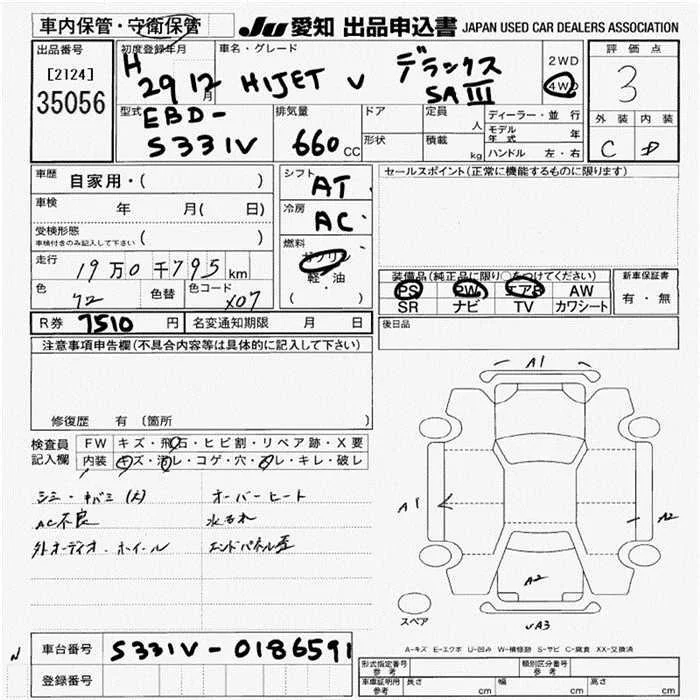 車内保管・守衛保管
JU 愛知 出品申込書 JAPAN USED CAR DEALERS ASSOCIATION
出品番号
[2124]
35056
初度登録年月
H 29 12 月
車名・グレード
HIJET V デラックス
SAⅢ
2WD
4WD
評価点
3
外装 内装
C D
型式
EBD-
S331V
排気量
660 CC
ドア
形状
定員 人
積載 kg
ディーラー・並行
モデル年式 年
ハンドル 左・右
車歴 自家用・( )
車検 年 月( 日)
受検形態
車検付きのみ記入して下さい ( )
走行 19万0千795 km
色 72 色替 色コード X07
シフト AT
冷房 AC
燃料
ガソリン
軽・油
( ・ )
セールスポイント(正常に機能するものに限ります)
装備品(純正品に限り○をつけてください)
PS PW エアB AW
SR ナビ TV カワシート
新車保証書
有・無
R券 7510 円 名変通知期限 月 日
後日品
注意事項申告欄(不具合内容等は具体的に記入して下さい)
修復歴 有 〔箇所 〕
検査員記入欄
FW キズ・飛石・ヒビ割・リペア跡・X要
内装 キズ・汚レ・コゲ・穴・スレ・キレ・破レ
シミ・キバミ(大) オーバーヒート
AC不良 水もれ
外オーディオ・ホイール エンドパネル歪
A1
A1
A2
A2
A3
スペア
A-キズ E-エクボ U-凹み W-補修跡 S-サビ C-腐食 XX-交換済
車台番号 S331V-0186591
登録番号
形式指定番号 参考
類別区分番号 参考
車庫証明用 参考 長さ cm 幅 cm 高さ cm